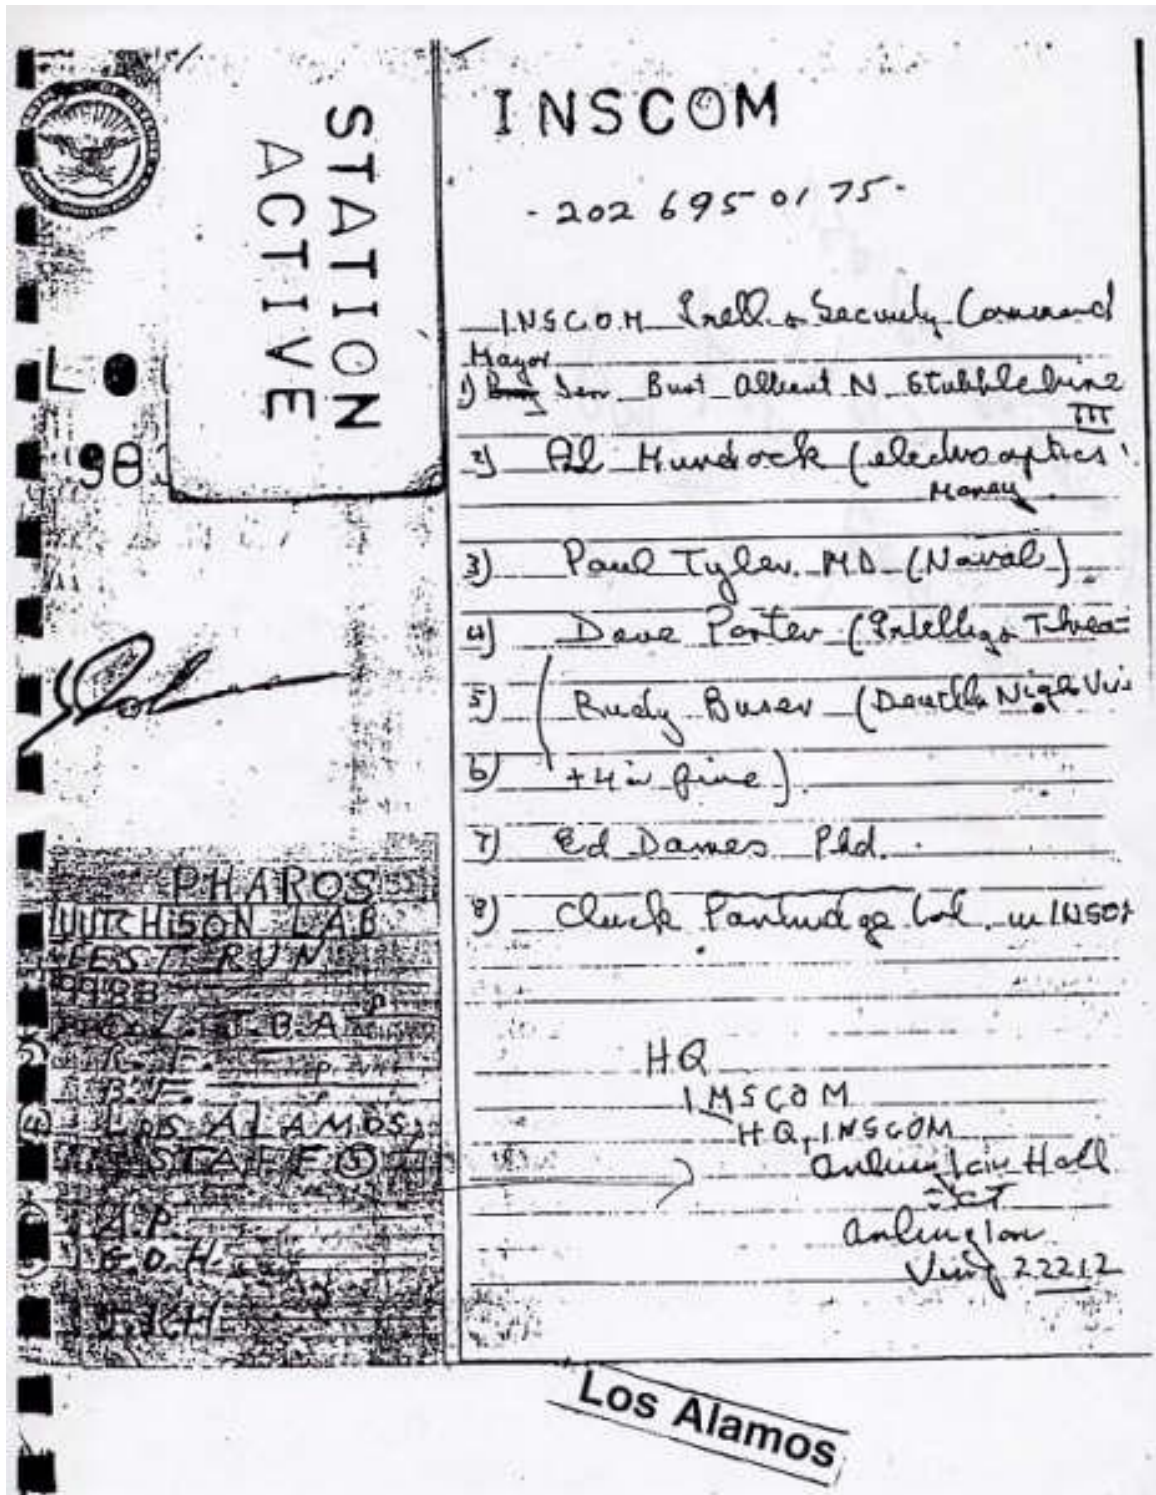 STATION
ACTIVE
PHAROS
HUTCHISON LAB
TEST RUN
T.B.A
R.F.
B.F.
LOS ALAMOS
STAFF 5
A.P.
G.O.H.
J.KH
INSCOM
- 202 695 0175 -
INSCOM Intell & Security Command
Mayor
1) Gen Burt Albert N. Stubblebine
III
2) Al Murdock (electrooptics
Money
3) Paul Tyler. MD (Naval)
4) Dave Porter (Intellig & Threa
5) Rudy Buser ( Night Vis
6) +4 in fine)
7) Ed Dames Phd.
8) Chuck Partridge Col. in INSCO
HQ
IMSCOM
HQ, INSCOM
Arlington Hall
Arlington
Virg 22212
Los Alamos